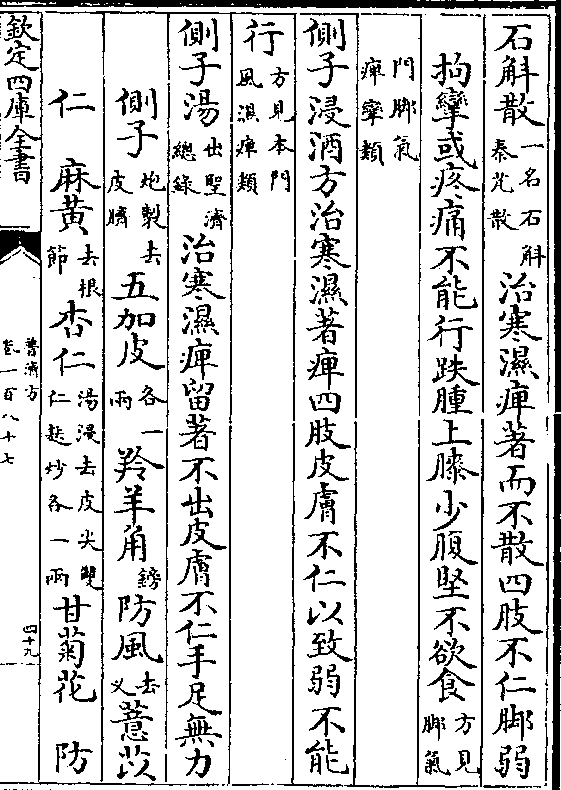 石斛散一名石斛秦艽散治寒濕痺著而不散四肢不仁脚弱
拘攣或疼痛不能行趺腫上膝少腹堅不欲食方見脚氣
門脚氣痺攣類
側子浸酒方治寒濕著痺四肢皮膚不仁以致弱不能
行方見本門風濕痺類
側子湯出聖濟總錄治寒濕痺留著不出皮膚不仁手足無力
側子炮製去皮臍五加皮各一兩羚羊角鎊防風去义薏苡
仁麻黃去根節杏仁湯浸去皮尖雙仁麩炒各一兩甘菊花防
欽定四庫全書
普濟方
卷一百八十七
四十九